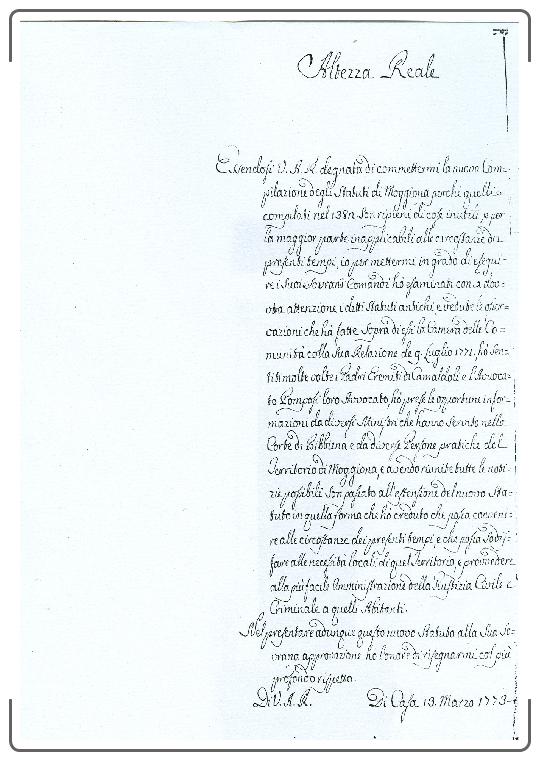 Altezza Reale
Essendosi V. A. R. degnata di commettermi la nuova Com=
pilazione degli Statuti di Moggiona perchè quelli
compilati nel 1382 son ripieni di cose inutili, e per
la maggior parte inapplicabili alle circostanze di
presenti tempi, io per mettermi in grado di esegui=
re i Suoi Sovrani Comandi hò esaminati con la dov=
uta attenzione i detti Statuti antichi e vedute le osser=
vazioni che hà fatte sopra di essi la Camera delle Co=
munità colla Sua Relazione de 9. Luglio 1771, hò sen=
titi molte volte i Padri Eremiti di Camaldoli e l'Avvoca=
to Pomposi loro Avvocato, hò prese le opportune infor=
mazioni da diversi Ministri che hanno servito nella
Corte di Bibbiena e da diverse Persone pratiche del
Territorio di Moggiona, e avendo riunite tutte le noti=
zie possibili son passato all'estensione del nuovo Sta=
tuto in quella forma che hò creduto che possa conveni=
re alle circostanze dei presenti tempi e che possa sodis=
fare alle necessità locali di quel Territorio, e provvedere
alla più facile Amministrazione della Giustizia Civile e
Criminale a quelli Abitanti.
Nel presentare adunque questo nuovo Statuto alla Sua So=
vrana approvazione ho l'onore di rassegnarmi col più
profondo rispetto.
Di V. A. R. Di Casa 13. Marzo 1773